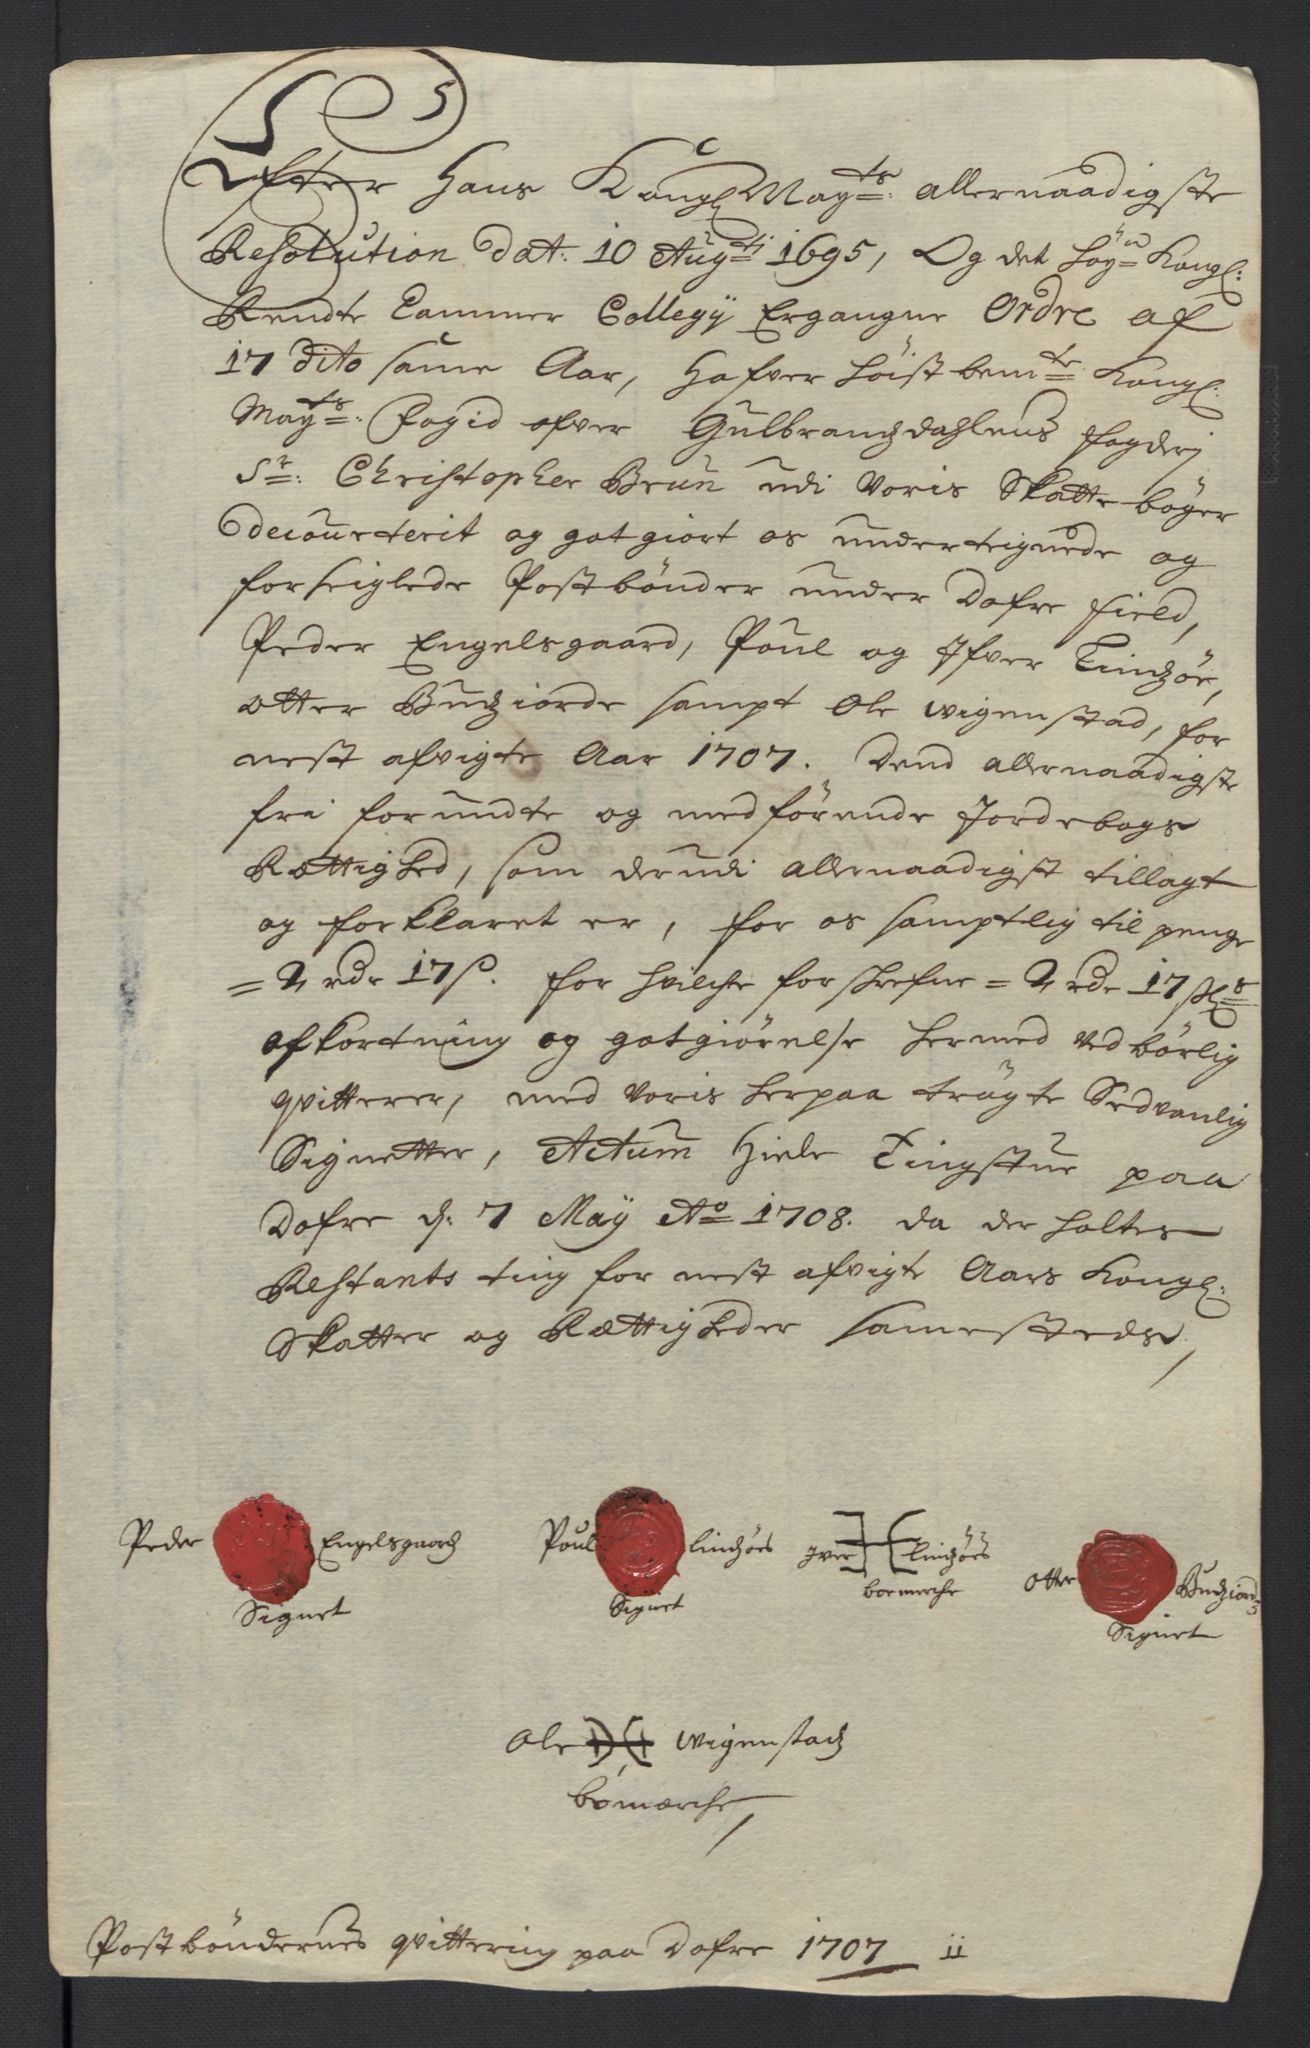 Efter Hans Kongl Mayts: allernaadigste
Resolution dat: 10 Augti 1695, Og det høye Kongl:
Rendte Cammer Collegij Ergangne Ordre af
17 dito same Aar, Hafver høist bemte Kongl:
Mayts: Fogid ofver Gulbrandzdahlens fogderj
Sr: Christopher Brun udi voris Skattebøger
decourterit og gotgiort os undertegnede og
forseiglede Postbønder under Dofre field,
Peder Engelsgaard, Poul og Ifver Lindzøe,
Otter Budziorde sampt Ole Wigenstad, for
nest afvigte Aar 1707. Dend allernaadigste
fri forundte og medførende Jordebogs
Rettighed, som derudi allernaadigst tillagt
og forklaret er, for os samptlig til penge
= 2 rdr 17 s. for hvilche forskrefne = 2 rdr 17 skls
afkortning og gotgiørelse hermed ved børlig
qvitterer, med voris herpaa trøgte Sedvanlig
Signetter, Actum Hiele Tingstue paa
Dofre d: 7 Maij Ao 1708. da der holtes
Restants ting for nest afvigte Aars Kongl:
Skatter og Rættigheder samesteds,
Peder Engelsgaardz
Signet
Poul Lindzøes
Signet
Iver Lindzøes
boemerche
Otter Budziordz
Signet
Ole Wigenstadz
bomerche
Postbøndernes qvittering paa Dofre 1707 ii